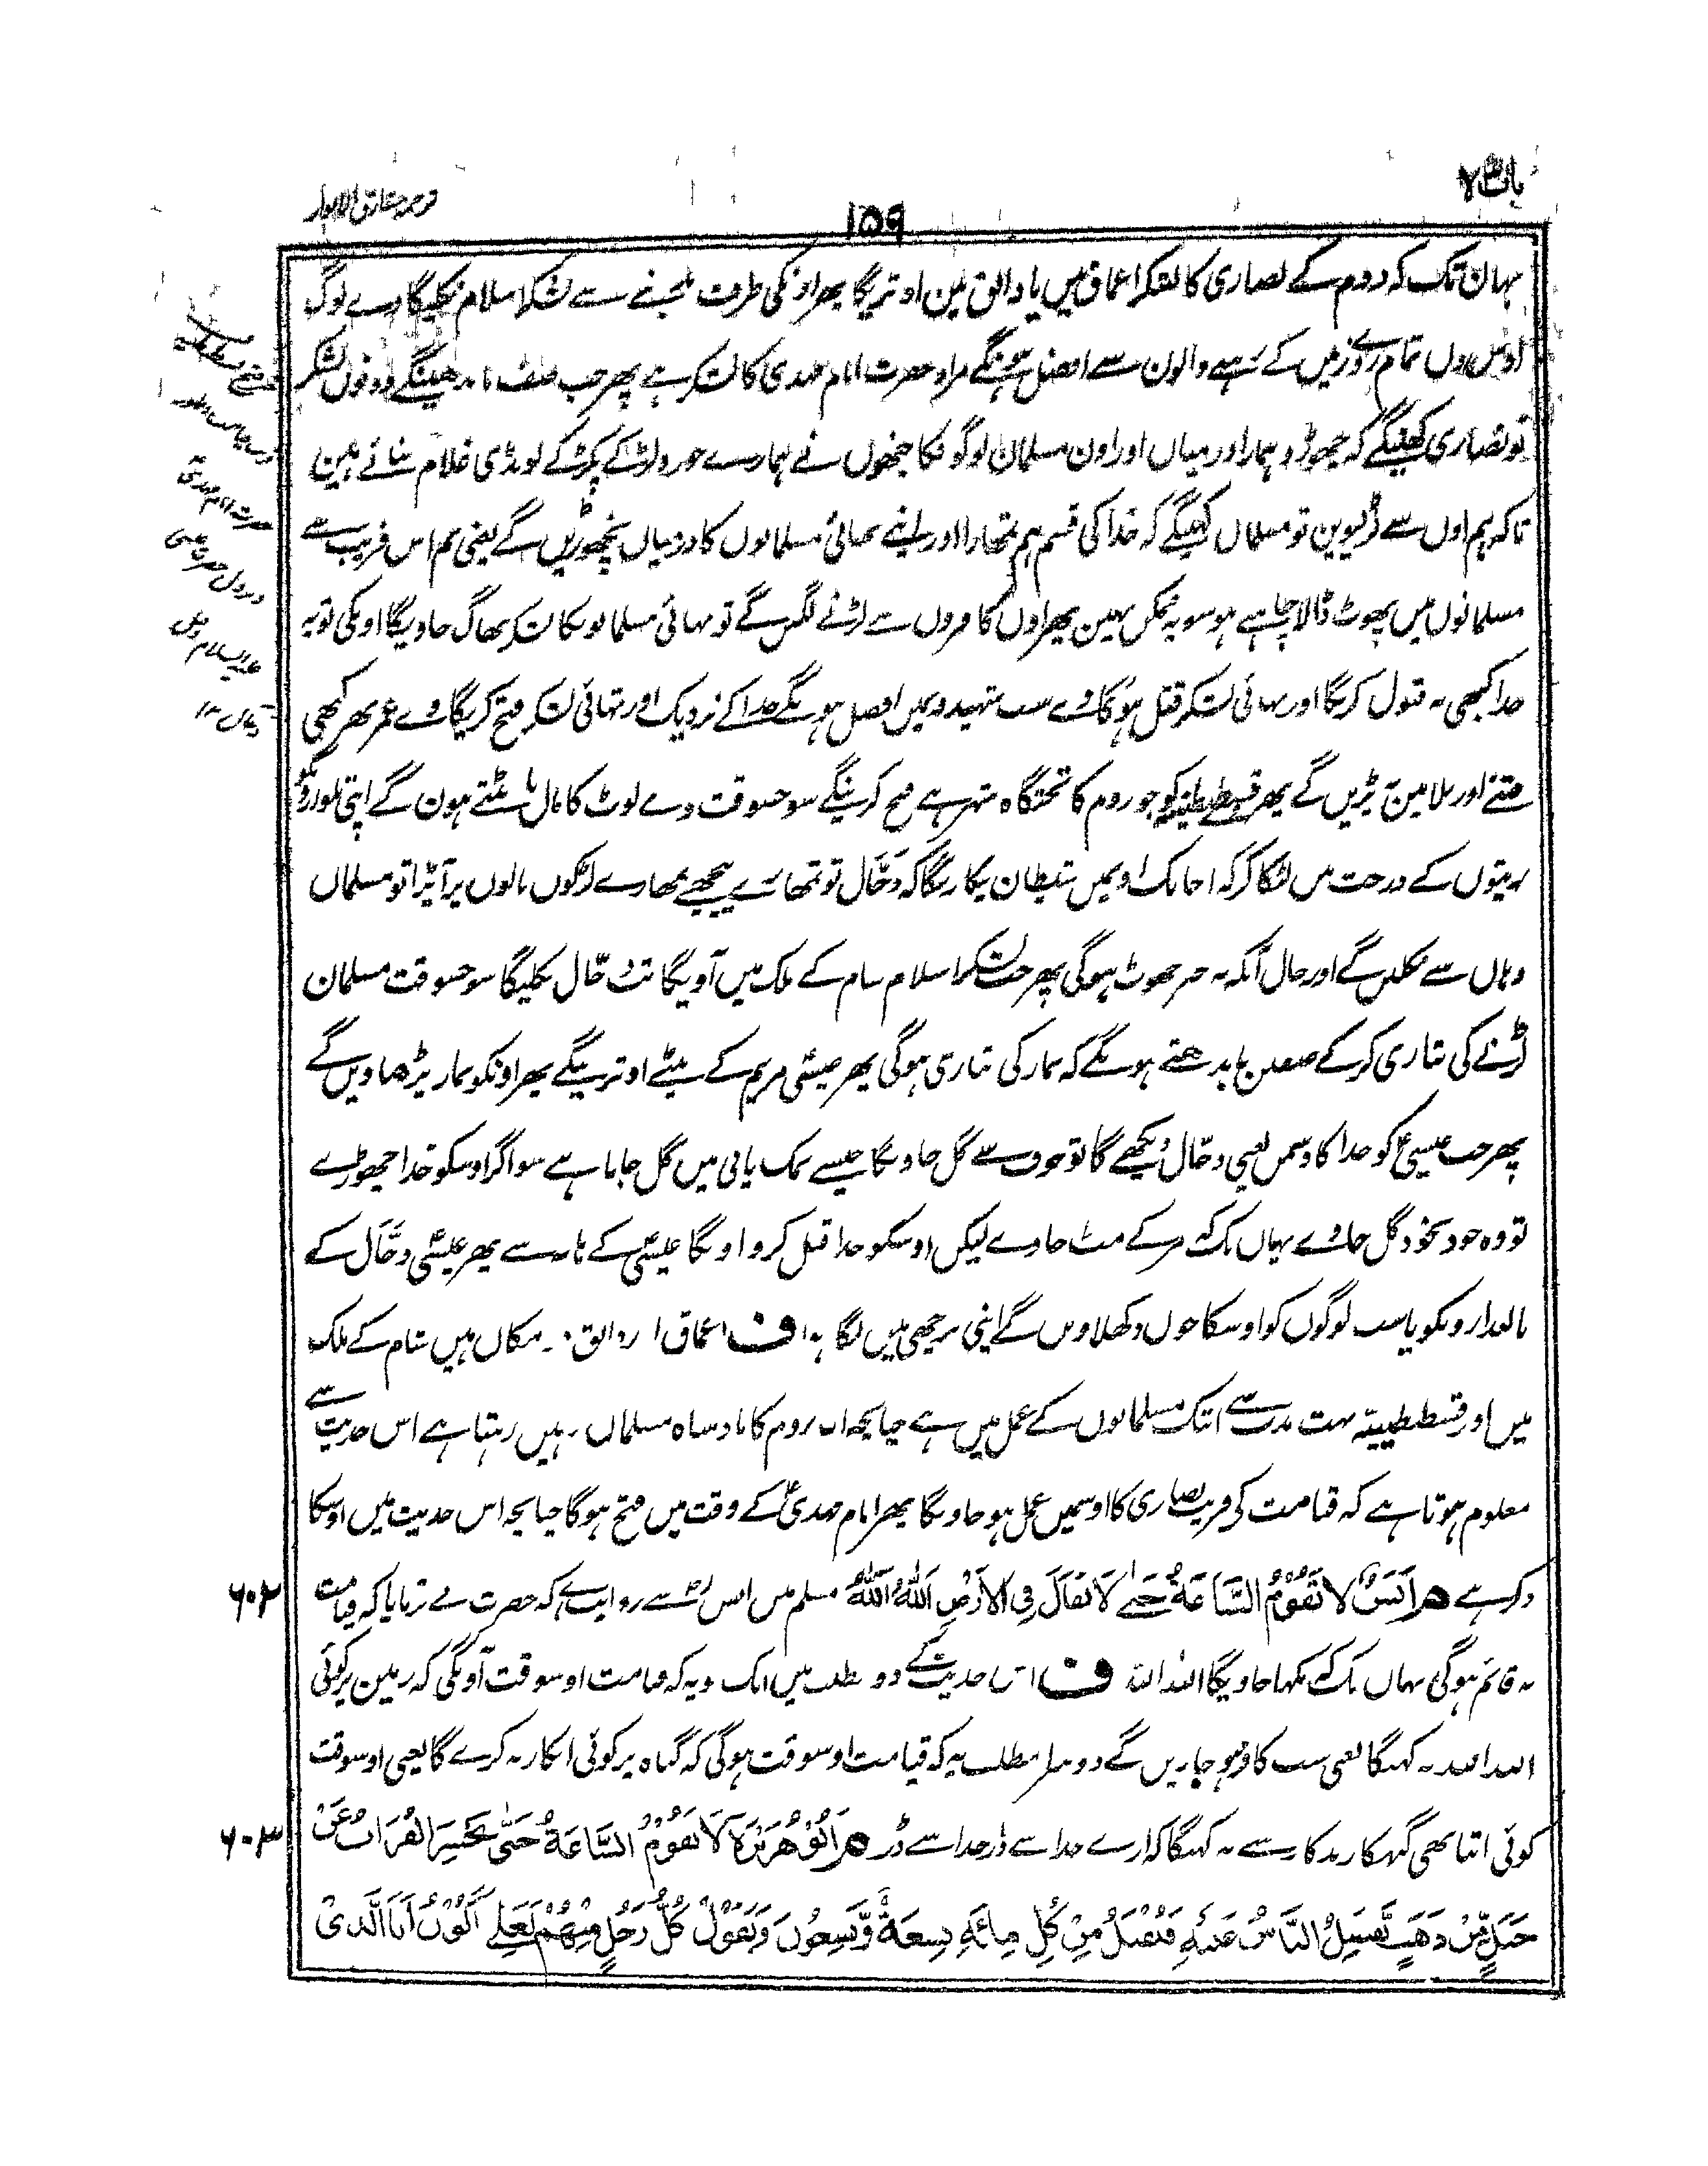 باب
۱۵۹
ترجمہ مشارق الانوار
یہان تک کہ روم کے نصاری کا لشکر اعماق میں یا دابق مین اوتریگا پھر اونکی طرف مدینے سے لشکر اسلام نکلیگا وے لوگ
اوس دن تمام روے زمین کے رہنے والون سے افضل ہونگے مراد حضرت امام مہدی کا لشکر ہے پھر جب صف باندھینگے دونوں لشکر
تو نصاری کہینگے کہ چھوڑ دو ہمارا درمیان اور اون مسلمان لوگونکا جنھوں نے ہمارے جورو لڑکے پکڑ کے لونڈی غلام بنائے ہین
تاکہ ہم اوں سے لڑیوین تو مسلمان کہینگے کہ خدا کی قسم ہم تمھارا اور اپنے بھائی مسلمانوں کا درمیاں نچھوڑیں گے یعنی تم اس فریب سے
مسلمانوں میں پھوٹ ڈالا چاہتے ہو سو یہ ممکن نہین پھر اوں کافروں سے لڑنے لگیں گے تو تہائی مسلمانونکا لشکر بھاگ جاویگا اونکی توبہ
خدا کبھی نہ قبول کریگا اور تہائی لشکر قتل ہوگا وے سب شہیدوں میں افضل ہونگے خدا کے نزدیک اور تہائی لشکر فتح کریگا وے عمر بھر کبھی
فتنے اور بلا مین نہ پڑیں گے پھر قسطنطنیہ کو جو روم کا تختگاہ شہر ہے فتح کرینگے سو جسوقت وے لوٹ کا مال بانٹتے ہون گے اپنی تلوارونکو
زیتوں کے درخت میں لٹکا کر کہ اچانک اونمیں شیطان پکاریگا کہ دجّال تو تمھارے پیچھے تمھارے لڑکوں بالوں پر آپڑا تو مسلمان
وہاں سے نکلیں گے اور حال آنکہ یہ خبر جھوٹ ہوگی پھر جب لشکر اسلام شام کے ملک میں آویگا تب دجّال نکلیگا سو جسوقت مسلمان
لڑنے کی تیاری کر کے صفین باندھتے ہونگے کہ نماز کی تیاری ہوگی پھر عیسٰی مریم کے بیٹے اوترینگے پھر اونکو نماز پڑھاویں گے
پھر جب عیسیٰؑ کو خدا کا دشمن یعنی دجّال دیکھے گا تو خوف سے گل جاویگا جیسے نمک پانی میں گل جاتا ہے سو اگر اوسکو خدا چھوڑ دے
تو وہ خود بخود گل جاوے یہاں تک کہ مر کے مٹ جاوے لیکن اوسکو خدا قتل کرواویگا عیسیٰؑ کے ہاتھ سے پھر عیسیٰؑ دجّال کے
تابعدارونکو یا سب لوگوں کو اوسکا خون دکھلاویں گے اپنی برچھی میں لگا ہوا ف اعماق اور دابق دو مکان ہیں شام کے ملک
میں اور قسطنطنیہ بہت مدت سے ابتک مسلمانوں کے عمل میں ہے چنانچہ اب روم کا بادشاہ مسلمان وہیں رہتا ہے اس حدیث سے
معلوم ہوتا ہے کہ قیامت کی قریب نصاری کا اوسمیں عمل ہو جاویگا پھر امام مہدیؑ کے وقت میں فتح ہوگا چنانچہ اس حدیث میں اوسکا
ذکر ہے ھر اَنَسٌ لَا تَقُوْمُ السَّاعَةُ حَتّٰے لَا یُقَالَ فِی الْاَرْضِ اَللّٰہُ اَللّٰہُ مسلم میں انسؓ سے روایت ہے کہ حضرت نے فرمایا کہ قیامت ۶۰۲
نہ قائم ہوگی یہاں تک کہ نکہا جاویگا اللہ اللہ ف اس حدیث کے دو مطلب ہیں ایک تو یہ کہ قیامت اوسوقت آویگی کہ زمین پر کوئی
اللہ اللہ نہ کہیگا یعنی سب کافر ہو جاویں گے دوسرا مطلب یہ کہ قیامت اوسوقت ہوگی کہ گناہ پر کوئی انکار نہ کرے گا یعنی اوسوقت
کوئی اتنا بھی گنہگار بدکار سے نہ کہیگا کہ ارے خدا سے ڈر خدا سے ڈر ھر اَبُوْ ھُرَیْرَةَ لَا تَقُوْمُ السَّاعَةُ حَتّٰی یَحْسِرَ الْفُرَاتُ عَنْ ۶۰۳
جَبَلٍ مِّنْ ذَھَبٍ یَّقْتَتِلُ النَّاسُ عَلَیْهِ فَیُقْتَلُ مِنْ کُلِّ مِائَةٍ تِسْعَةٌ وَّتِسْعُوْنَ وَیَقُوْلُ کُلُّ رَجُلٍ مِّنْھُمْ لَعَلِّے اَکُوْنُ اَنَا الَّذِیْ
حضرت امام مہدی
و نزول حضرت عیسی
علیہ السلام